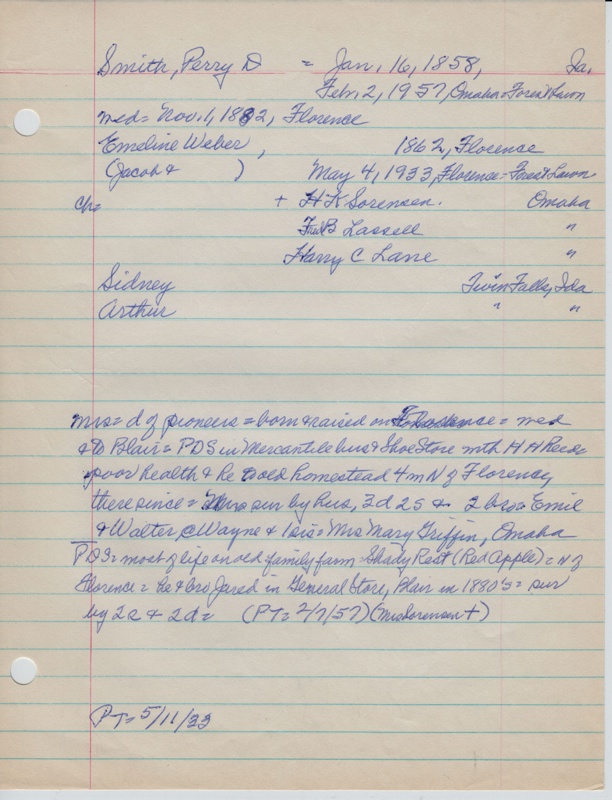 Smith, Perry D = Jan. 16, 1858, Ia.
Feb. 2, 1957, Omaha = Forest Lawn
med = Nov. 1, 1882, Florence
Emeline Weber, 1862, Florence
(Jacob & ) May 4, 1933, Florence - Forest Lawn
ch = + H K Sorensen. Omaha
Fred B Lassell "
Harry C Lane "
Sidney Twin Falls, Ida
Arthur " "
mrs = d of pioneers = born & raised on = med
& to Blair = P D S in Mercantile bus & Shoe Store with H H Reed =
poor health & re to old homestead 4 m N of Florence,
there since = Mrs sur by hus, 3 d 2 s & 2 bro = Emil
& Walter, @ Wayne & 1 sis = Mrs Mary Griffin, Omaha
P D S = most of life on old family farm - Shady Rest (Red Apple) = N of
Florence = he & bro Jared in General Store, Blair in 1880's = sur
by 2 s & 2 d = (PT = 2/7/57) (Mrs Sorensen +)
PT = 5/11/33